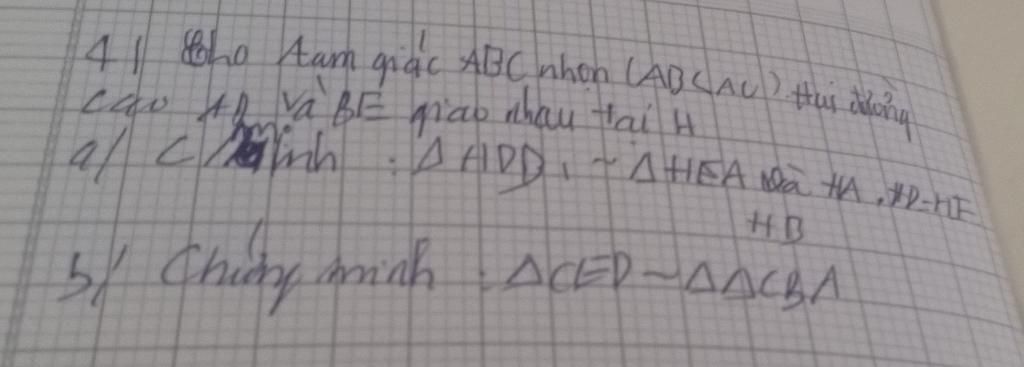 4/ Cho tam giác ABC nhọn (AB<AC). Hai đường
cao AD và BE giao nhau tại H
a/ C/minh : Δ HDB ~ Δ HEA và HA . HD = HE
HB
b/ Chứng minh : ΔCED ~ ΔΔCBA